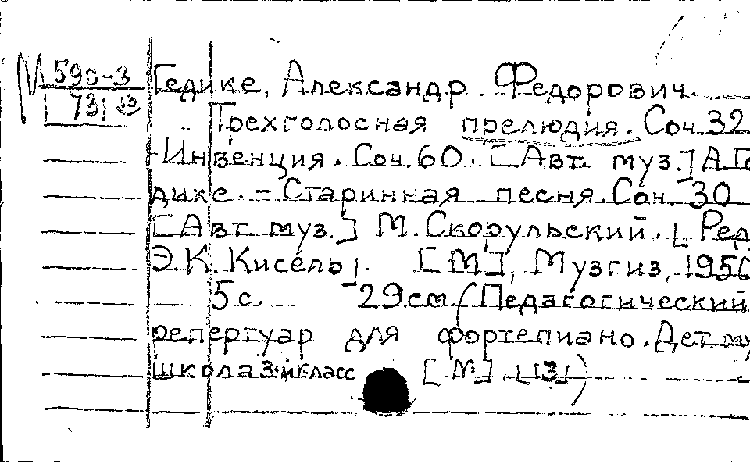 М 590-3 Гедике, Александр Федорович.
731 Трехголосная прелюдия. Соч. 32
- Инвенция. Соч. 60. [Авт. муз.] А. Ге
дике. - Старинная песня. Соч. 30
[Авт муз.] М. Скорульский. [Ред.
Э. К. Кисель]. [М], Музгиз, 1956
5 с. 29 см (Педагогический
репертуар для фортепиано. Дет му
школа 3-й класс [М] [13])